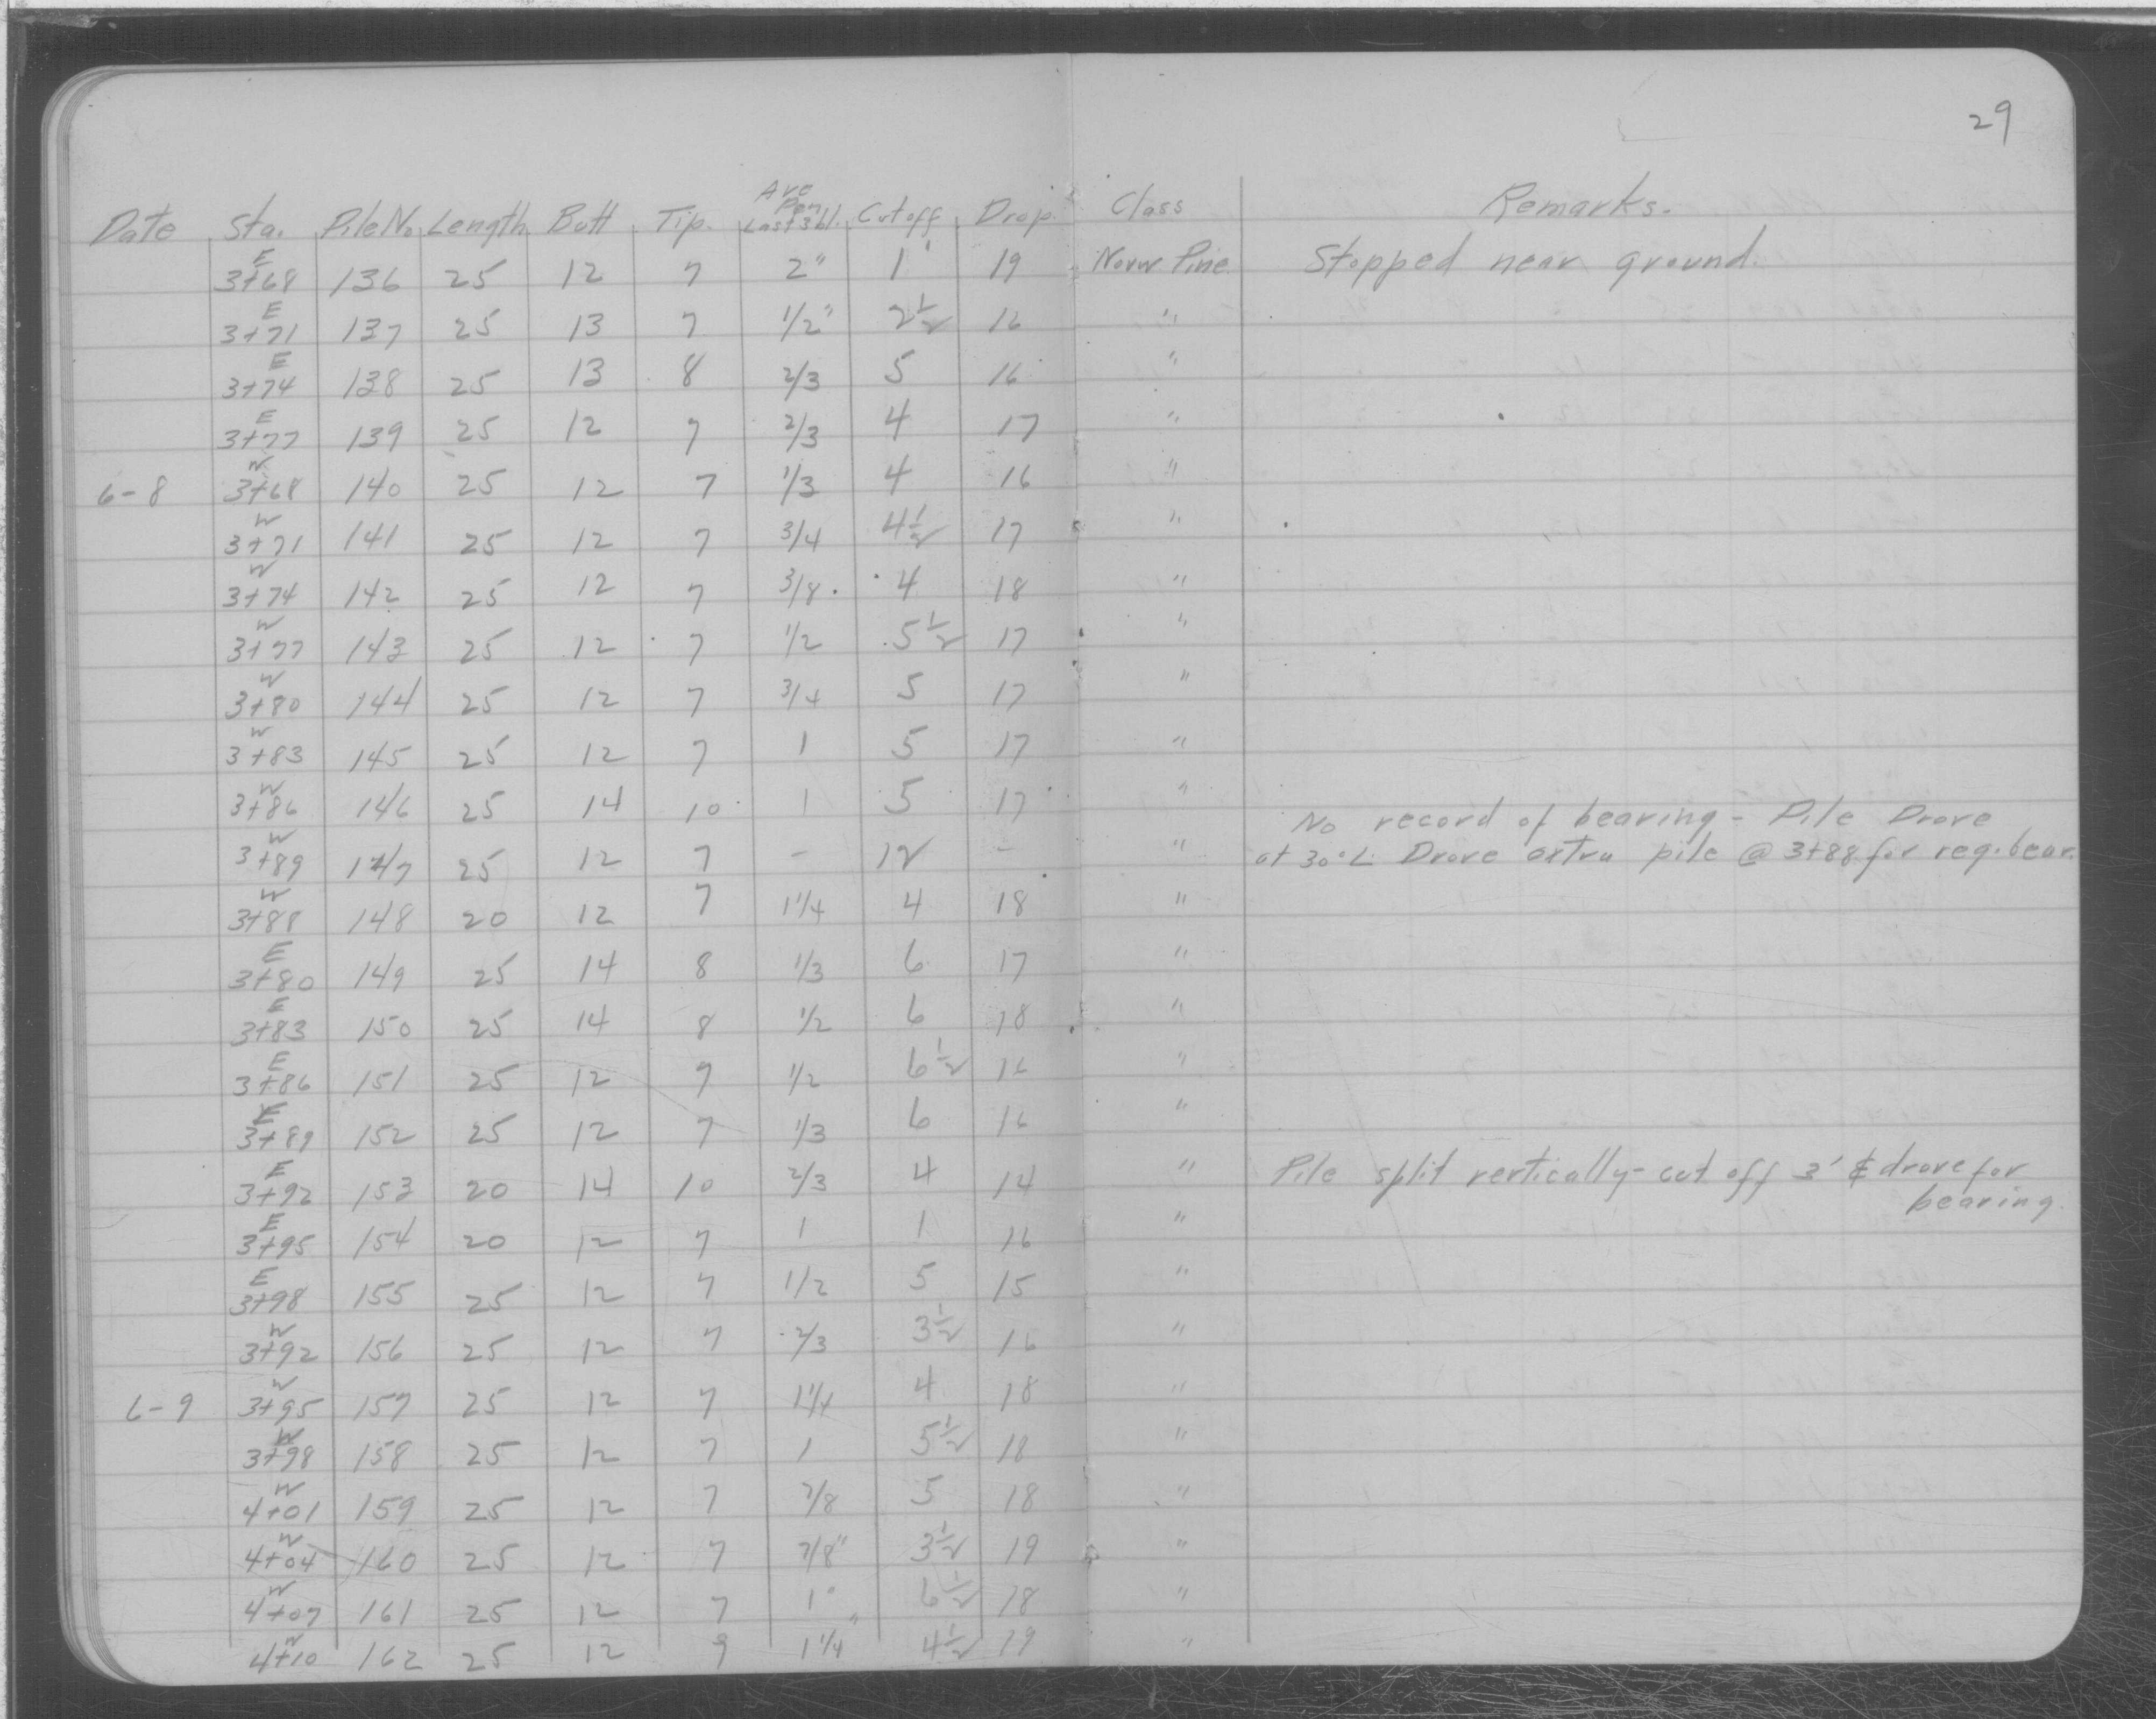 29
Date Sta. Pile No Length Butt Tip. Ave Pen Last 3 bl. Cutoff Drop. Class Remarks.
E 3+68 136 25 12 7 2" 1' 19 Norw Pine Stopped near ground.
E 3+71 137 25 13 7 1/2" 2 1/2 16 "
E 3+74 138 25 13 8 2/3 5 16 "
E 3+77 139 25 12 7 2/3 4 17 "
6-8 W 3+68 140 25 12 7 1/3 4 16 "
W 3+71 141 25 12 7 3/4 4 1/2 17 "
W 3+74 142 25 12 7 3/8 4 18 "
W 3+77 143 25 12 7 1/2 5 1/2 17 "
W 3+80 144 25 12 7 3/4 5 17 "
W 3+83 145 25 12 7 1 5 17 "
W 3+86 146 25 14 10 1 5 17 "
No record of bearing - Pile Drove
W 3+89 147 25 12 7 - 12 - " at 30° L. Drove extra pile @ 3+88 for reg. bear.
W 3+88 148 20 12 7 1 1/4 4 18 "
E 3+80 149 25 14 8 1/3 6 17 "
E 3+83 150 25 14 8 1/2 6 18 "
E 3+86 151 25 12 7 1/2 6 1/2 16 "
E 3+89 152 25 12 7 1/3 6 16 "
E 3+92 153 20 14 10 2/3 4 14 " Pile split vertically - cut off 3' & drove for
bearing.
E 3+95 154 20 12 7 1 1 16 "
E 3+98 155 25 12 7 1/2 5 15 "
W 3+92 156 25 12 7 2/3 3 1/2 16 "
6-9 W 3+95 157 25 12 7 1 1/4 4 18 "
W 3+98 158 25 12 7 1 5 1/2 18 "
W 4+01 159 25 12 7 7/8 5 18 "
W 4+04 160 25 12 7 7/8" 3 1/2 19 "
W 4+07 161 25 12 7 1" 6 1/2 18 "
W 4+10 162 25 12 9 1 1/4" 4 1/2 19 "